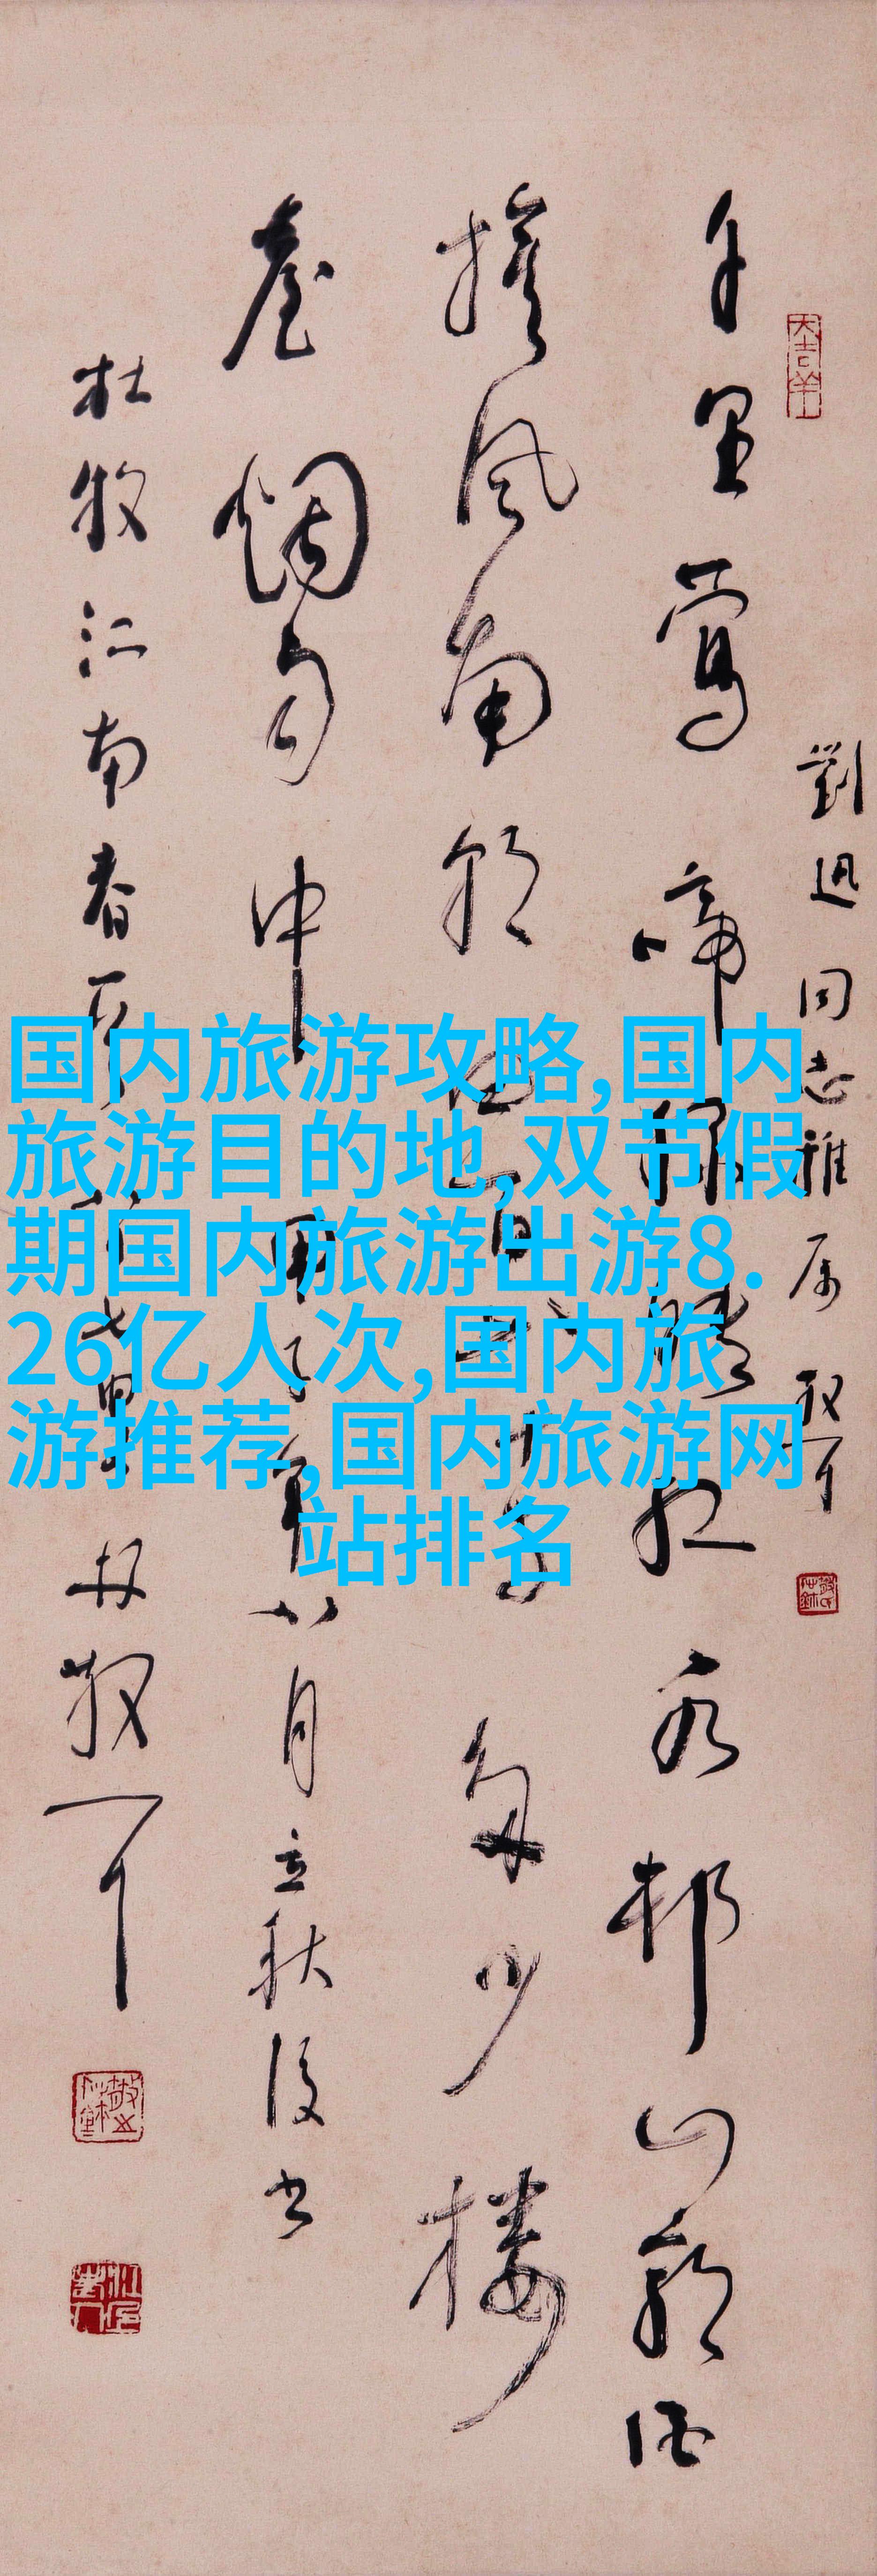 劉迅同志雅屬 散耳
千里莺啼绿映红水邨山郭酒
旗风南朝四百八十寺多少楼
臺烟雨中 八月立秋後书
杜牧江南春 林散耳
国内旅游攻略,国内
旅游目的地,双节假
期国内旅游出游8.
26亿人次,国内旅
游推荐,国内旅游网
站排名